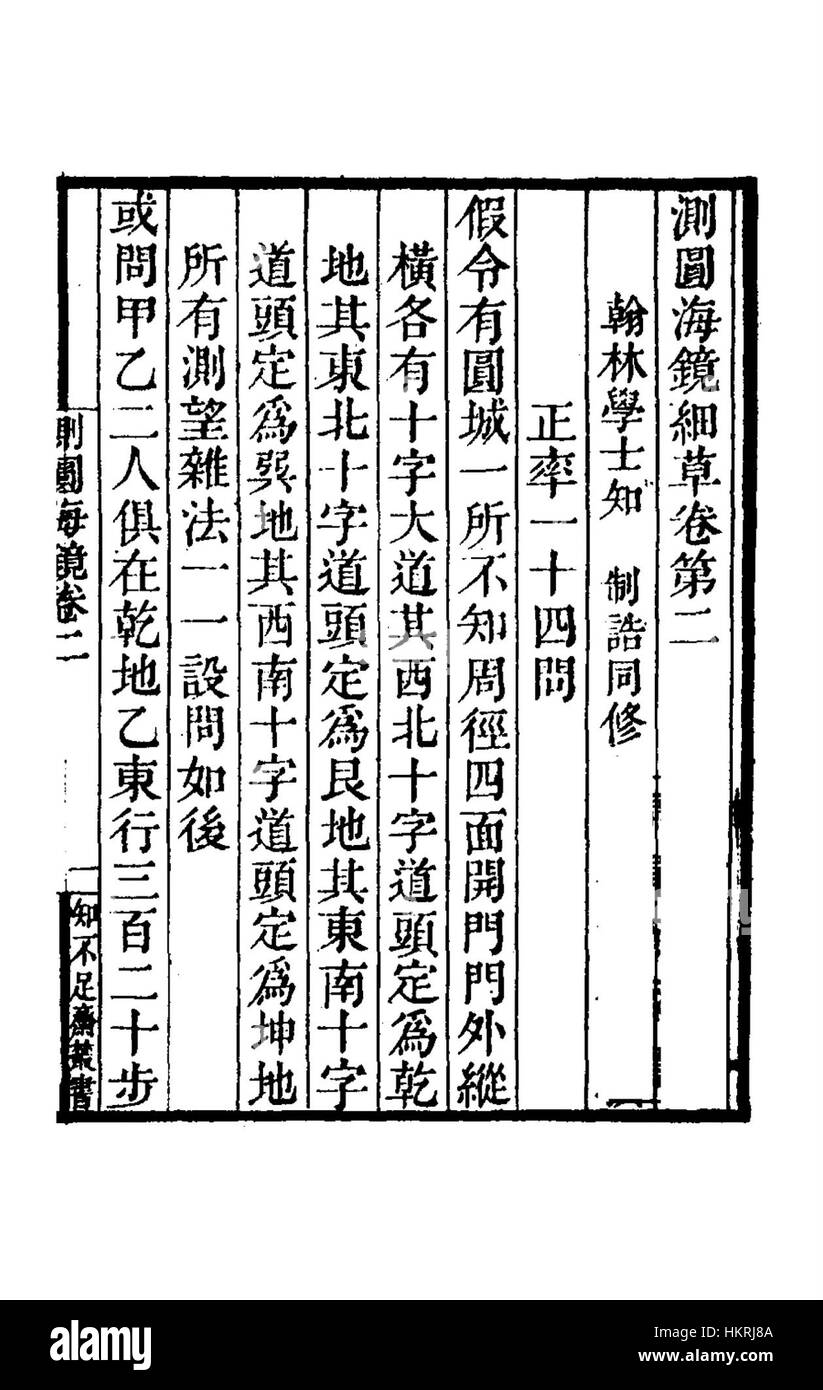 測圓海鏡細草卷第二
翰林學士知 制誥同修
正率一十四問
假令有圓城一所不知周徑四面開門門外縱
橫各有十字大道其西北十字道頭定爲乾
地其東北十字道頭定爲艮地其東南十字
道頭定爲巽地其西南十字道頭定爲坤地
所有測望雜法一一設問如後
或問甲乙二人俱在乾地乙東行三百二十步
測圓海鏡卷二
一
知不足齋叢書
alamy
Image ID: HKRJ8A
www.alamy.com